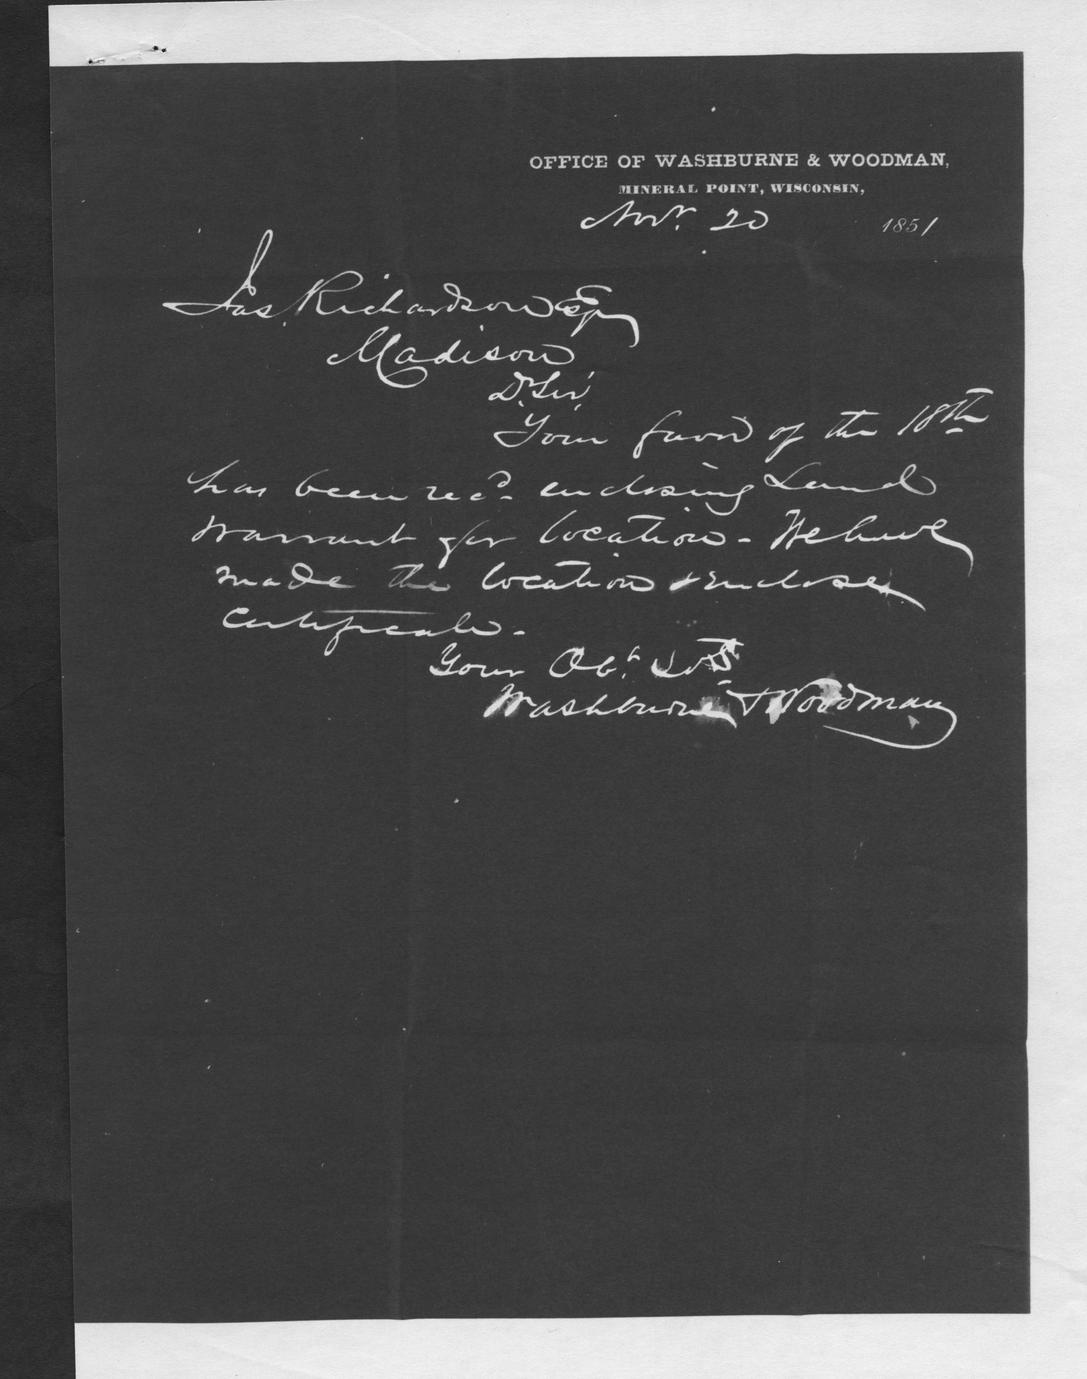 OFFICE OF WASHBURNE & WOODMAN,
MINERAL POINT, WISCONSIN,
Novr. 20 1851
Jas. Richardson Esq
Madison
Dr. Sir,
Your favor of the 18th
has been recd. enclosing Land
Warrant for location - We have
made the location & enclose
Certificate -
Your Obt. Svts
Washburne & Woodman